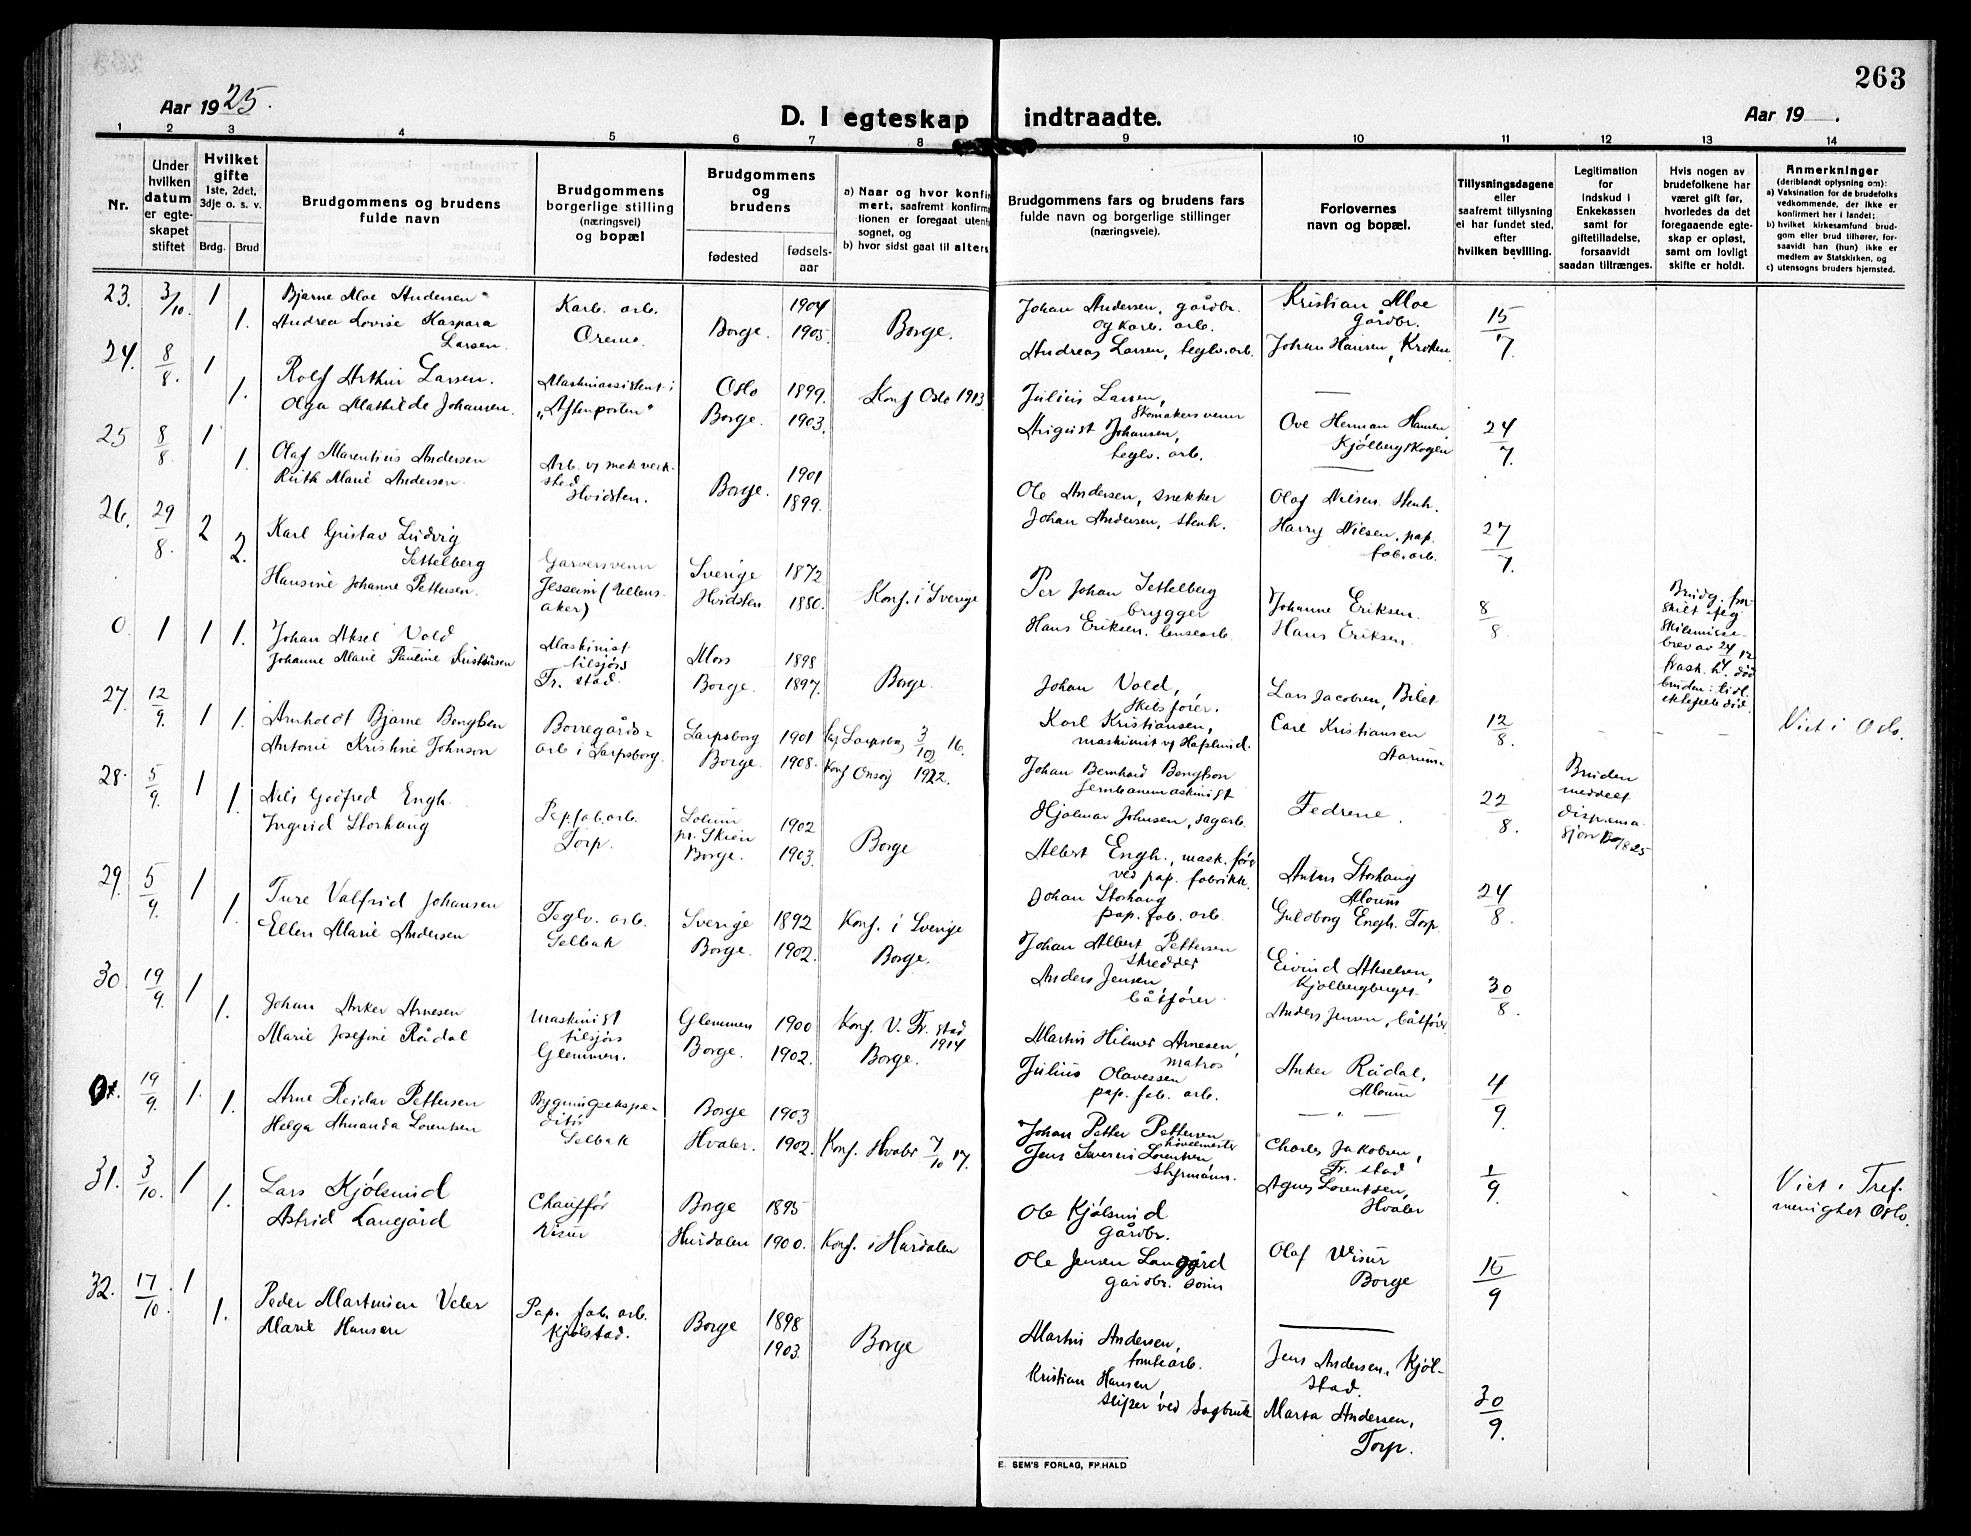 263
Aar 1925.
D. I egteskap indtraadte.
Aar 19 .
1 2 3 4 5 6 7 8 9 10 11 12 13 14
Nr.
Under
hvilken
datum
er egte-
skapet
stiftet
Hvilket
gifte
1ste, 2det,
3dje o. s. v.
Brdg. Brud
Brudgommens og brudens
fulde navn
Brudgommens
borgerlige stilling
(næringsvei)
og bopæl
Brudgommens
og
brudens
fødested
fødsels-
aar
a) Naar og hvor konfir
mert, saafremt konfirma
tionen er foregaat utenfo
sognet, og
b) hvor sidst gaat til alters
Brudgommens fars og brudens fars
fulde navn og borgerlige stillinger
(næringsveie).
Forlovernes
navn og bopæl.
Tillysningsdagene
eller
saafremt tillysning
ei har fundet sted,
efter
hvilken bevilling.
Legitimation
for
indskud i
Enkekassen
samt for
giftetilladelse,
forsaavidt
saadan tiltrænges.
Hvis nogen av
brudefolkene har
været gift før,
hvorledes da det
foregaaende egte-
skap er opløst,
samt om lovligt
skifte er holdt.
Anmerkninger
(deriblandt oplysning om):
a) Vaksination for de brudefolks
vedkommende, der ikke er
konfirmert her i landet;
b) hvilket kirkesamfund brud-
gom eller brud tilhører, for-
saavidt han (hun) ikke er
medlem av Statskirken, og
c) utensogns bruders hjemsted.
23. 3/10 1 1.
Bjarne Moe Andersen
Andrea Lovise Kaspara
Larsen.
Karb. arb.
Oremo.
Borge.
1904
1905
Borge.
Johan Andersen, gårdbr.
og karb. arb.
Andreas Larsen, teglv. arb.
Kristian Moe
Gårdbr.
Johan Hansen, Kroken
15/7.
24. 8/8. 1 1.
Rolf Arthur Larsen.
Olga Mathilde Johansen.
Maskinassistent i
"Aftenposten"
Oslo 1899.
Borge. 1903.
Konf Oslo 1913
Julius Larsen,
Skomakersvenn
August Johansen,
teglv. arb.
Ove Herman Hansen,
Kjölbergskogen
24/7.
25 8/8. 1 1.
Olaf Marentius Andersen
Ruth Marie Andersen.
Arb. v/ mek verk-
sted
Hvidsten.
Borge.
1901
1899.
Ole Andersen, snekker
Johan Andersen, stenh.
Olaf Nilsen. Stenh.
Harry Nilsen, pap.
fab. arb.
27/7.
26. 29/8. 2 2.
Karl Gustav Ludvig
Settelberg
Hansine Johanne Pettersen.
Garversvenn
Jesseim (Ullens-
aker)
Sverige 1872
Hvidsten 1880.
Konf. i Sverige
Per Johan Settelberg
brygger
Hans Eriksen. lensearb.
Johanne Eriksen.
Hans Eriksen.
8/8
Brudg. for-
skilt
Skilsmisse-
brev av 24/12
bruden: tidl.
ektefelle död.
0 1 1 1.
Johan Aksel Vold
Johanne Marie Pauline Kristiansen
Maskinist
tilsjøs
Fr. stad.
Moss 1898
Borge. 1897.
Borge.
Johan Vold,
Skibsfører.
Karl Kristiansen,
maskinist v/ Hafslund.
Lars Jacobsen, Bilet
Carl Kristiansen
12/8.
Viet i Oslo.
27. 12/9. 1 1.
Arnholdt Bjarne Bengtsen
Antonie Kristine Johnsen
Borregårds-
arb i Sarpsborg.
Sarpsborg 1901
Borge. 1908.
Sarpsb. 3/10 16.
Konf Onsöy 1922.
Johan Bernhard Bengtson
Jernbanemaskinist
Hjalmar Johnsen, sagarb.
Fedrene.
22/8.
Bruden
meddelt
dispensa-
sjon
28. 5/9. 1 1.
Nils Godfred Engh.
Ingrid Storhaug
Pap. fab. arb.
Torp.
Solum
pr. Skien 1902
Borge. 1903.
Borge
Albert Engh., mask. fører
ved pap. fabrikk.
Johan Storhaug
pap. fab. arb.
Anton Storhaug
Moum
Guldborg Engh. Torp.
24/8.
29. 5/9. 1 1.
Ture Valfrid Johansen
Ellen Marie Andersen
Teglv. arb.
Selbak
Sverige 1892
Borge 1902.
Konf. i Sverige
Borge.
Johan Albert Pettersen
skredder
Anders Jensen,
båtfører.
Eivind Akselsen,
Kjölbergberget.
Anders Jensen, båtfører
30/8.
30. 19/9. 1 1.
Johan Anker Arnesen
Marie Josefine Rådal
Maskinist
tilsjøs
Glemmen.
Glemmen 1900
Borge. 1902.
Konf. V. Fr. stad
1914
Borge.
Martin Hilmer Arnesen,
matros
Julius Olavessen
pap. fab. arb.
Anker Rådal,
Moum
4/9.
19/9. 1. 1.
Arne Reidar Pettersen
Helga Amanda Lorentsen
Bygningsekspe-
ditör
Selbak
Borge 1903
Hvaler. 1902.
Konf. Hvaler 7/10 17.
Johan Petter Pettersen
hövelmester
Jens Severin Lorentsen
Styrmann.
Charles Jakobsen,
Fr. stad
Agnes Lorentsen,
Hvaler
1/9.
Viet i Tref.
menighet Oslo.
31. 3/10. 1 1.
Lars Kjölsrud
Astrid Langård
Chauffør
Visur
Borge 1895
Hurdalen 1900.
Konf. i Hurdalen
Ole Kjölsrud
Gårdbr.
Ole Jensen Langård
gårdbr. sönn
Olaf Visur
Borge
15/9
32. 17/10. 1 1.
Peder Martinsen Veler
Marie Hansen
Pap. fab. arb.
Kjölstad.
Borge
1898
1903.
Borge
Martin Andersen,
tomtearb.
Kristian Hansen
sliper ved Sagbruk
Jens Andersen, Kjöl-
stad.
Marta Andersen,
Torp.
30/9.
E. SEM'S FORLAG, FR.HALD